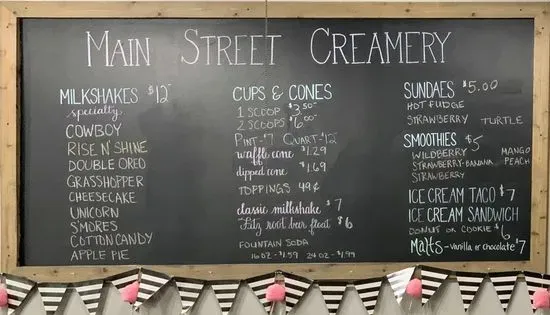 MAIN STREET CREAMERY
MILKSHAKES $12
specialty
COWBOY
RISE N' SHINE
DOUBLE OREO
GRASSHOPPER
CHEESECAKE
UNICORN
S'MORES
COTTON CANDY
APPLE PIE
CUPS & CONES
1 SCOOP $3.50
2 SCOOPS $6.00
PINT-$7 QUART-$12
waffle cone $1.29
dipped cone $1.69
TOPPINGS 49¢
classic milkshake $7
Fitz root beer float $6
FOUNTAIN SODA
16 OZ - $1.59 24 OZ - $1.99
SUNDAES $5.00
HOT FUDGE
STRAWBERRY TURTLE
SMOOTHIES $5
WILDBERRY MANGO
STRAWBERRY-BANANA PEACH
STRAWBERRY
ICE CREAM TACO $7
ICE CREAM SANDWICH
DONUT OR COOKIE $6
Malts - vanilla or chocolate $7